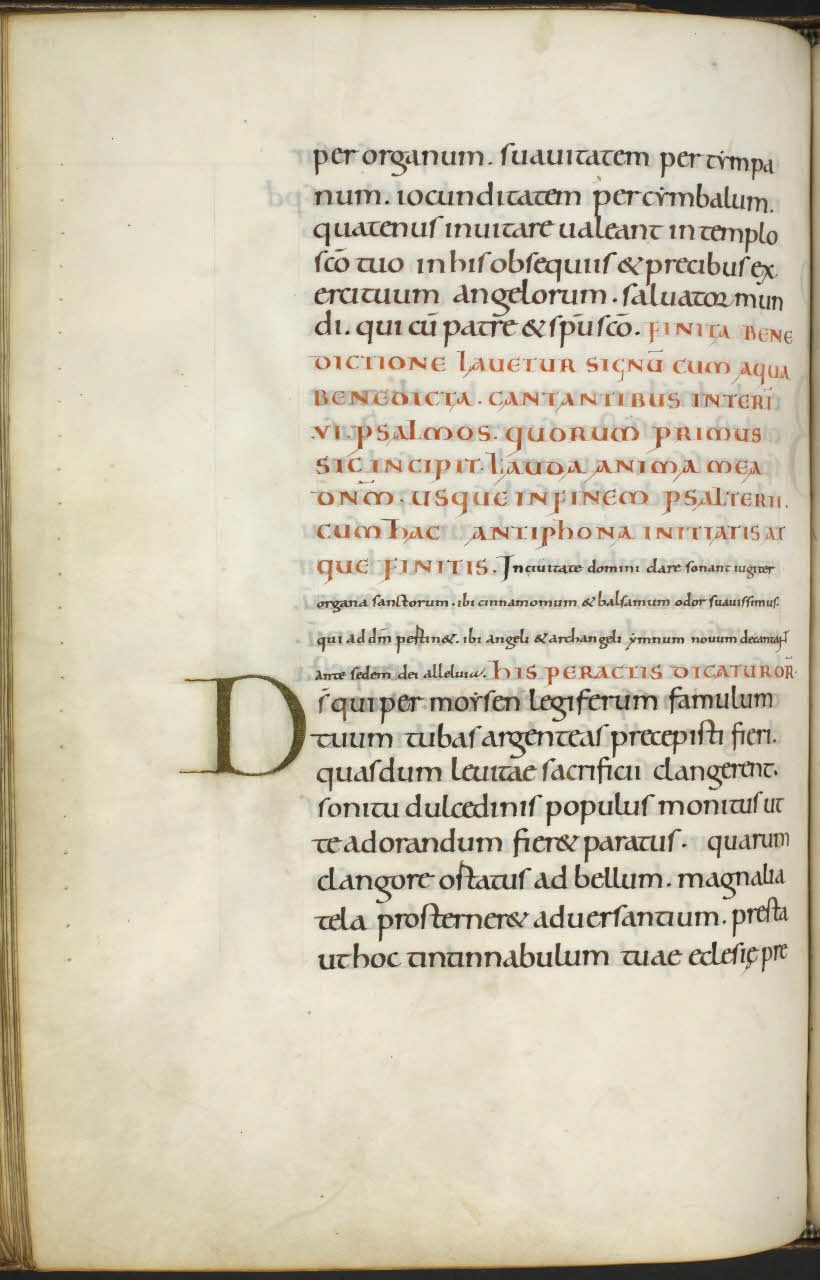 per organum. suauitatem per tẏmpa
num. iocunditatem per cẏmbalum.
quatenus inuitare ualeant in templo
sc̄o tuo in his obsequiis & precibus ex
ercituum angelorum. saluator mun
di. qui cū patr̄e & sp̄u sc̄o. FINITA BENE
DICTIONE LAUETUR SIGNŪ CUM AQUA
BENEDICTA. CANTANTIBUS INTERĪ
.VI. PSALMOS. QUORUM PRIMUS
SIC INCIPIT. LAUDA ANIMA MEA
DN̄M. USQUE IN FINEM PSALTERII.
CUM HAC ANTIPHONA INITIATIS AT
QUE FINITIS. In ciuitate domini clare sonant iugiter
organa sanctorum. ibi cinnamomum & balsamum odor suauissimus.
qui ad dm̄ pertin&. ibi angeli & archangeli ẏmnum nouum decantant
ante sedem dei alleluia. HIS PERACTIS DICATUR OR̄.
Ds̄ qui per moẏsen legiferum famulum
tuum tubas argenteas precepisti fieri.
quas dum leuitae sacrificii clangerent.
sonitu dulcedinis populus monitus ut
te adorandum fier& paratus. quarum
clangore ostatus ad bellum. magnalia
tela prosterner& aduersantium. presta
ut hoc tintinnabulum tuae eclesię pre